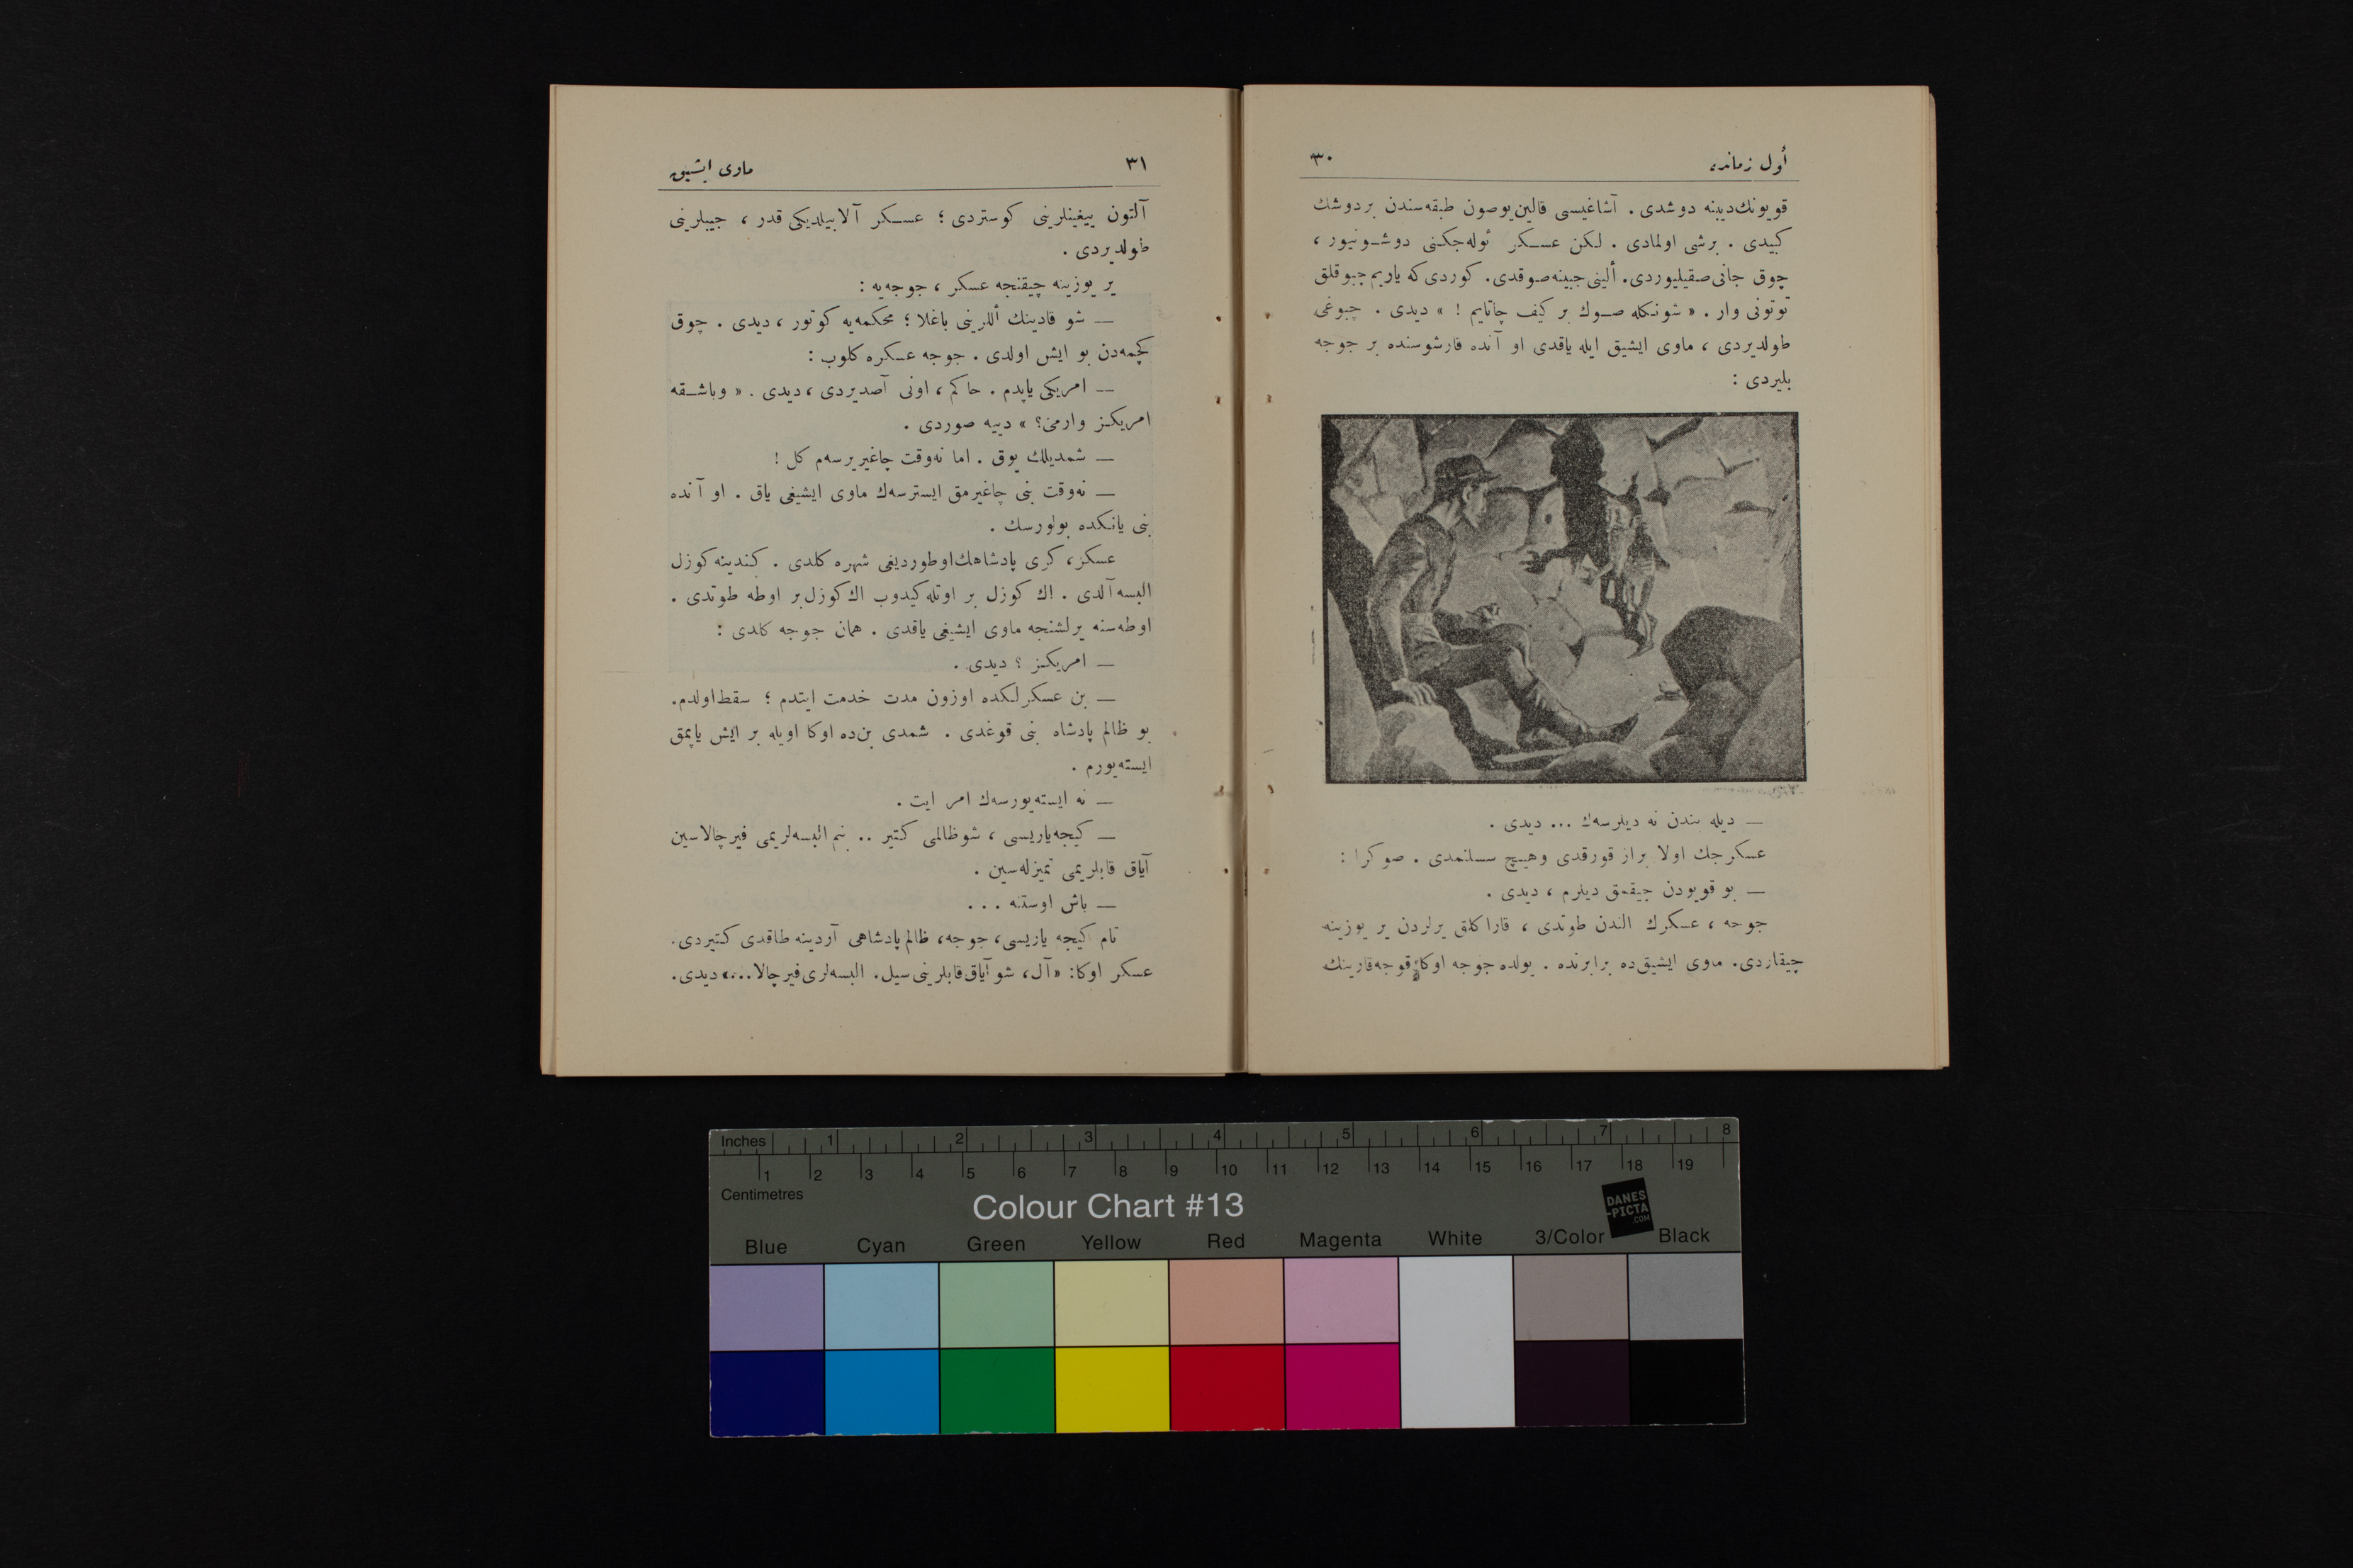 أول زمانده
٣٠
قویونك دیبنه دوشدی. آشاغیسی قالین یوصون طبقه‌سندن بر دوشك
كبیدی . برشی اولمادی . لكن عسكر ئوله‌جكنی دوشونیور ،
چوق جانی صقیلیوردی. ألینی جیبنه صوقدی. كوردی كه یاریم چبوقلق
توتونی وار . « شونكله صوك بر كیف چاتایم ! » دیدی . چبوغی
طولدیردی ، ماوی ایشیق ایله یاقدی او آنده قارشوسنده بر جوجه
بلیردی :
— دیله بندن نه دیلرسه‌ك ... دیدی .
عسكرجك اولا براز قورقدی وهیچ سسلنمدی . صوكرا :
— بو قویودن چیقمق دیلرم ، دیدی .
جوجه ، عسكرك الندن طوتدی ، قارا كلق یرلردن یر یوزینه
چیقاردی. ماوی ایشیق ده برابرنده . یولده جوجه اوكا قوجه قارینك
٣١
ماوی ایشیق
آلتون ییغینلرینی كوستردی ؛ عسكر آلابیلدیكی قدر ، جیبلرینی
طولدیردی .
یر یوزینه چیقنجه عسكر ، جوجه‌یه :
— شو قادینك أللرینی باغلا ؛ محكمه‌یه كوتور ، دیدی . چوق
كچمه‌دن بو ایش اولدی . جوجه عسكره كلوب :
— امریكی یاپدم . حاكم ، اونی آصدیردی ، دیدی . « وباشقه
امریكز وارمی؟ » دییه صوردی .
— شمدیلك یوق . اما نه‌وقت چاغیریرسه‌م كل !
— نه‌وقت بنی چاغیرمق ایسترسه‌ك ماوی ایشیغی یاق . او آنده
بنی یانكده بولورسك .
عسكر ، كری پادشاهك اوطوردیغی شهره كلدی . كندینه كوزل
البسه آلدی . اك كوزل بر اوتله كیدوب اك كوزل بر اوطه طوتدی .
اوطه‌سنه یرلشنجه ماوی ایشیغی یاقدی . همان جوجه كلدی :
— امریكز ؟ دیدی .
— بن عسكرلكده اوزون مدت خدمت ایتدم ؛ سقط اولدم.
بو ظالم پادشاه بنی قوغدی . شمدی بن‌ده اوكا اویله بر ایش یاپمق
ایسته‌یورم .
— نه ایسته‌یورسه‌ك امر ایت .
— كیجه یاریسی ، شو ظالمی كتیر .. بنم البسه‌لریمی فیرچالاسین
آیاق قابلریمی تمیزله‌سین .
— باش اوستنه ...
تام كیجه یاریسی، جوجه، ظالم پادشاهی آردینه طاقدی كتیردی.
عسكر اوكا: «آل، شو آیاق قابلرینی سیل. البسه‌لری فیرچالا...» دیدی.
Inches 1 2 3 4 5 6 7 8
1 2 3 4 5 6 7 8 9 10 11 12 13 14 15 16 17 18 19
Centimetres
Colour Chart #13
DANES
-PICTA
.COM
Blue Cyan Green Yellow Red Magenta White 3/Color Black